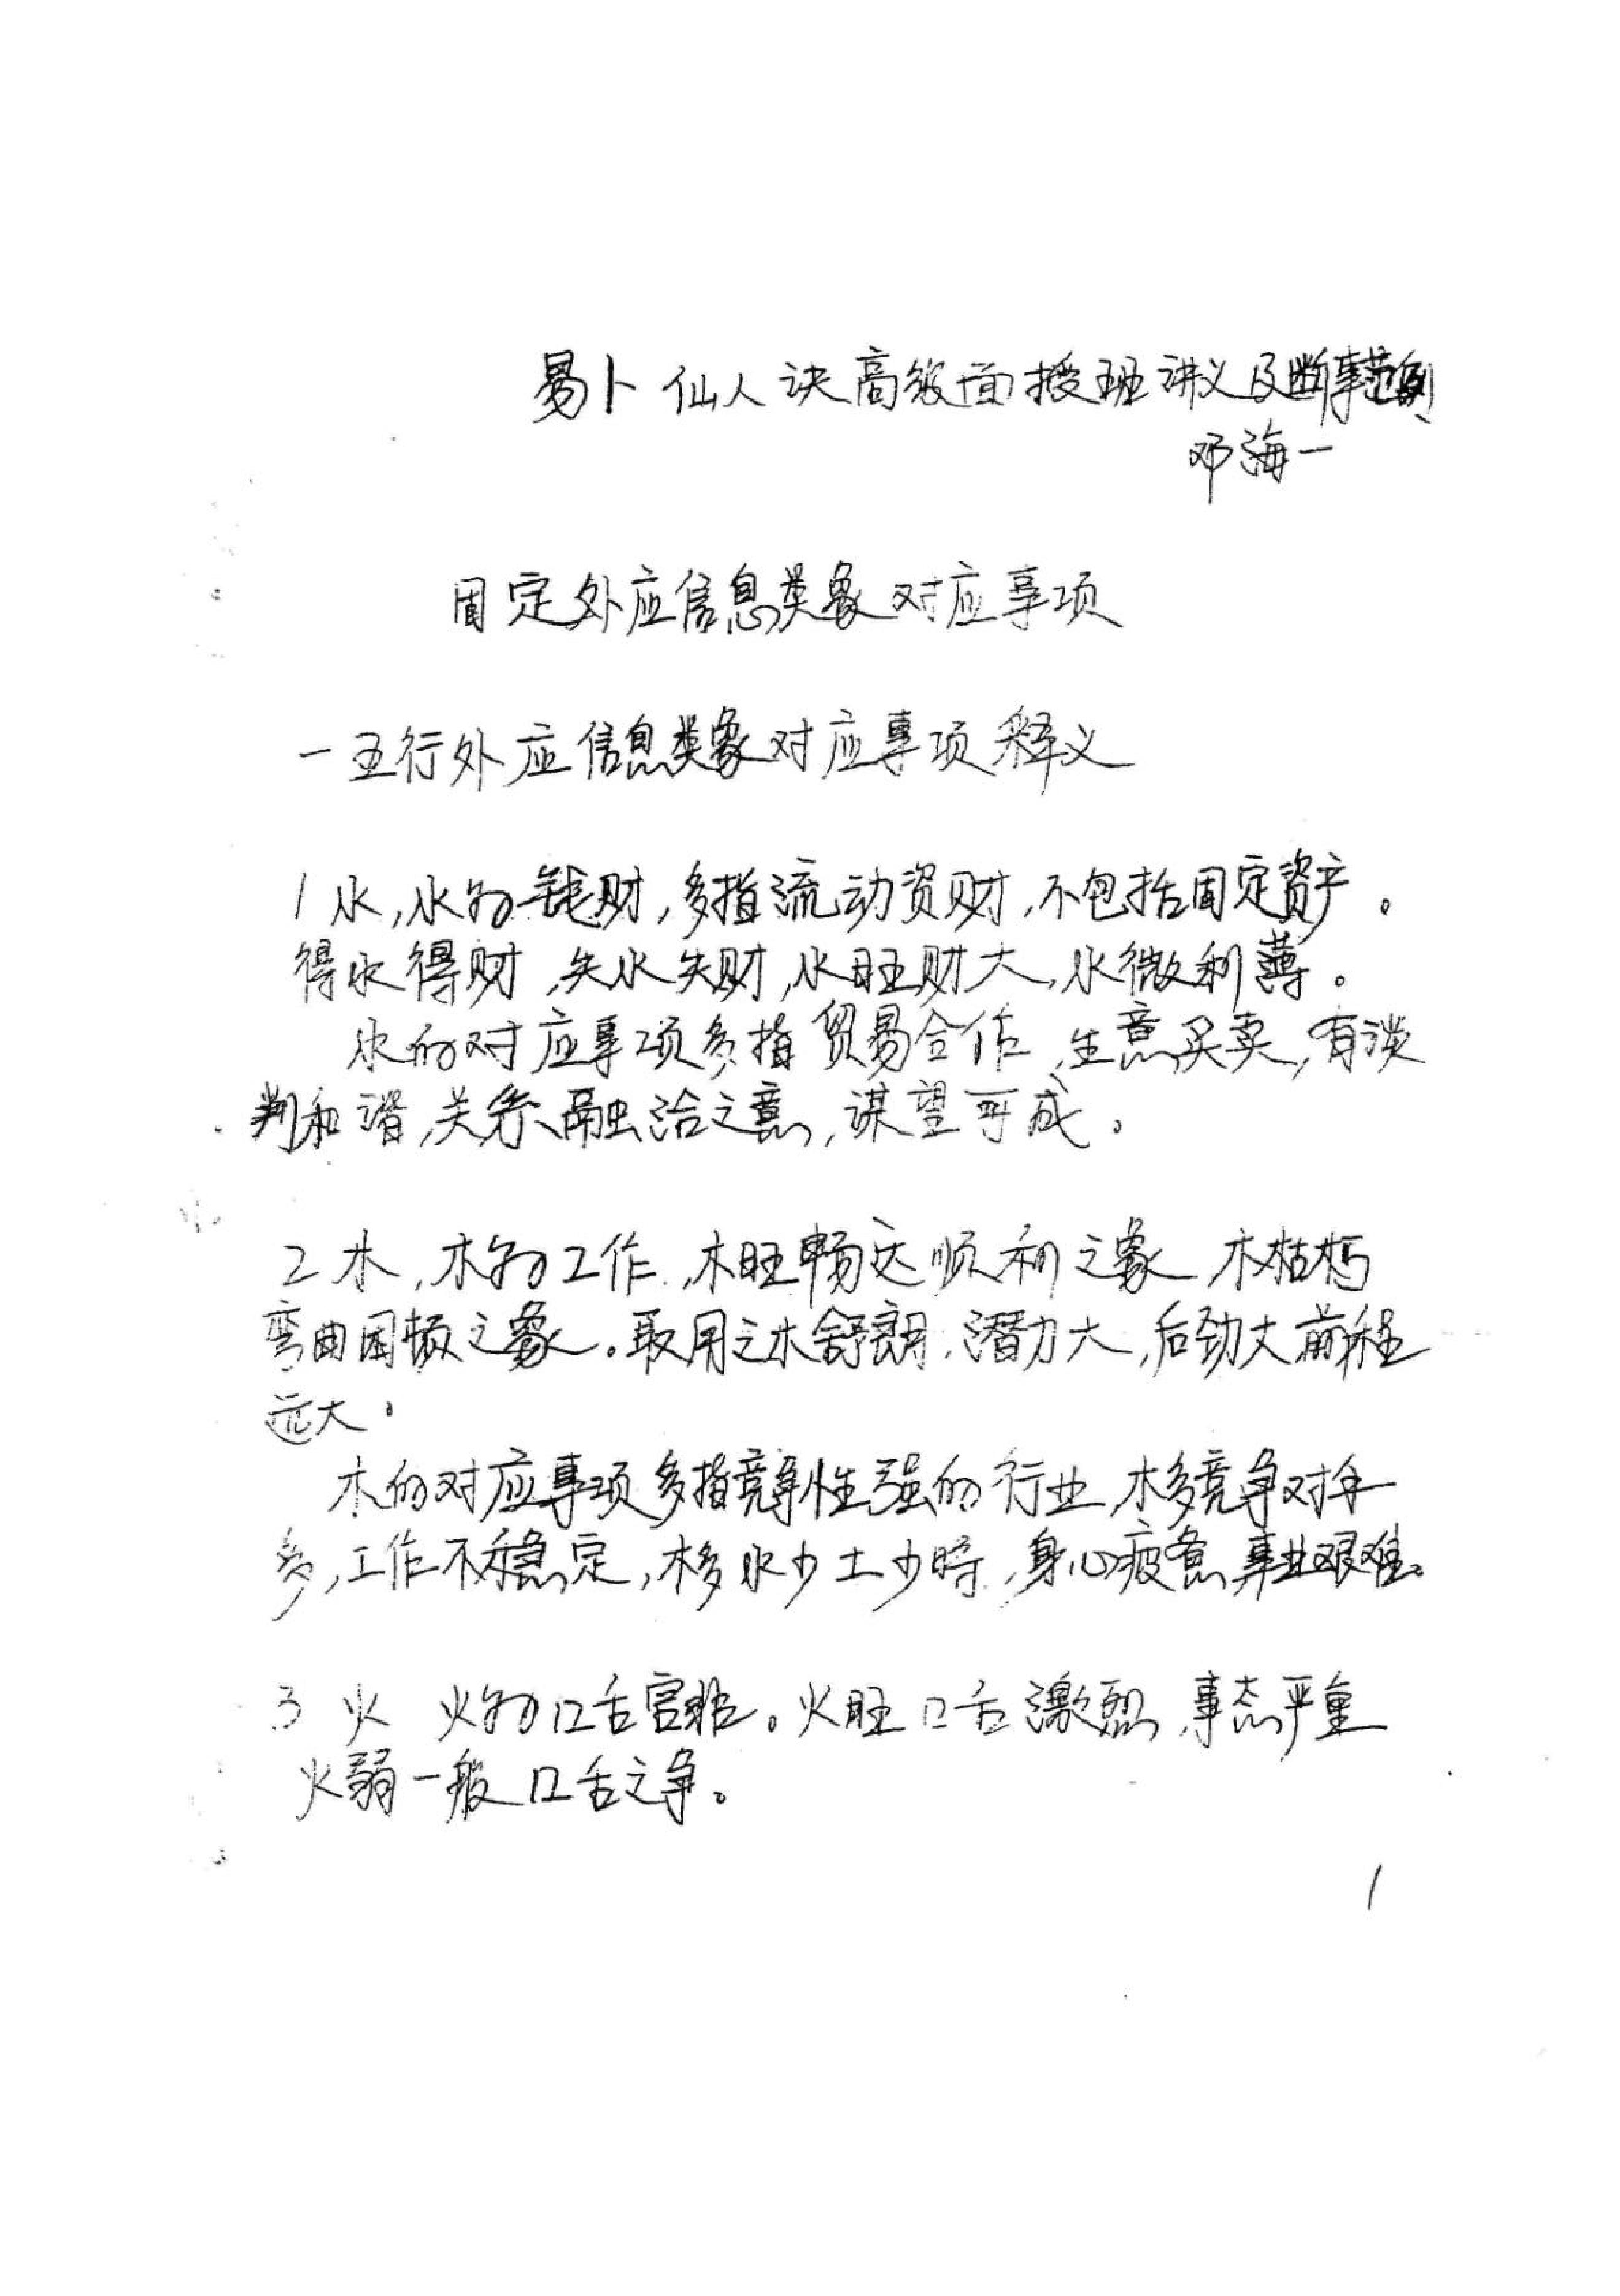 易卜仙人诀高级面授班讲义及断事范例
邓海一
固定外应信息类象对应事项
一五行外应信息类象对应事项释义
1水,水为钱财,多指流动资财,不包括固定资产。
得水得财,失水失财,水旺财大,水微利薄。
水的对应事项多指贸易合作,生意买卖,有谈
判和谐,关系融洽之意,谋望可成。
2木,木为工作,木旺畅达顺利之象,木枯朽
弯曲困顿之象。取用之木舒朗,潜力大,后劲大前程
远大。
木的对应事项多指竞争性强的行业,木多竞争对手
多,工作不稳定,木多水少土少時,身心疲惫事业艰难。
3火 火为口舌官非。火旺口舌激烈,事态严重
火弱一般口舌之争。
1